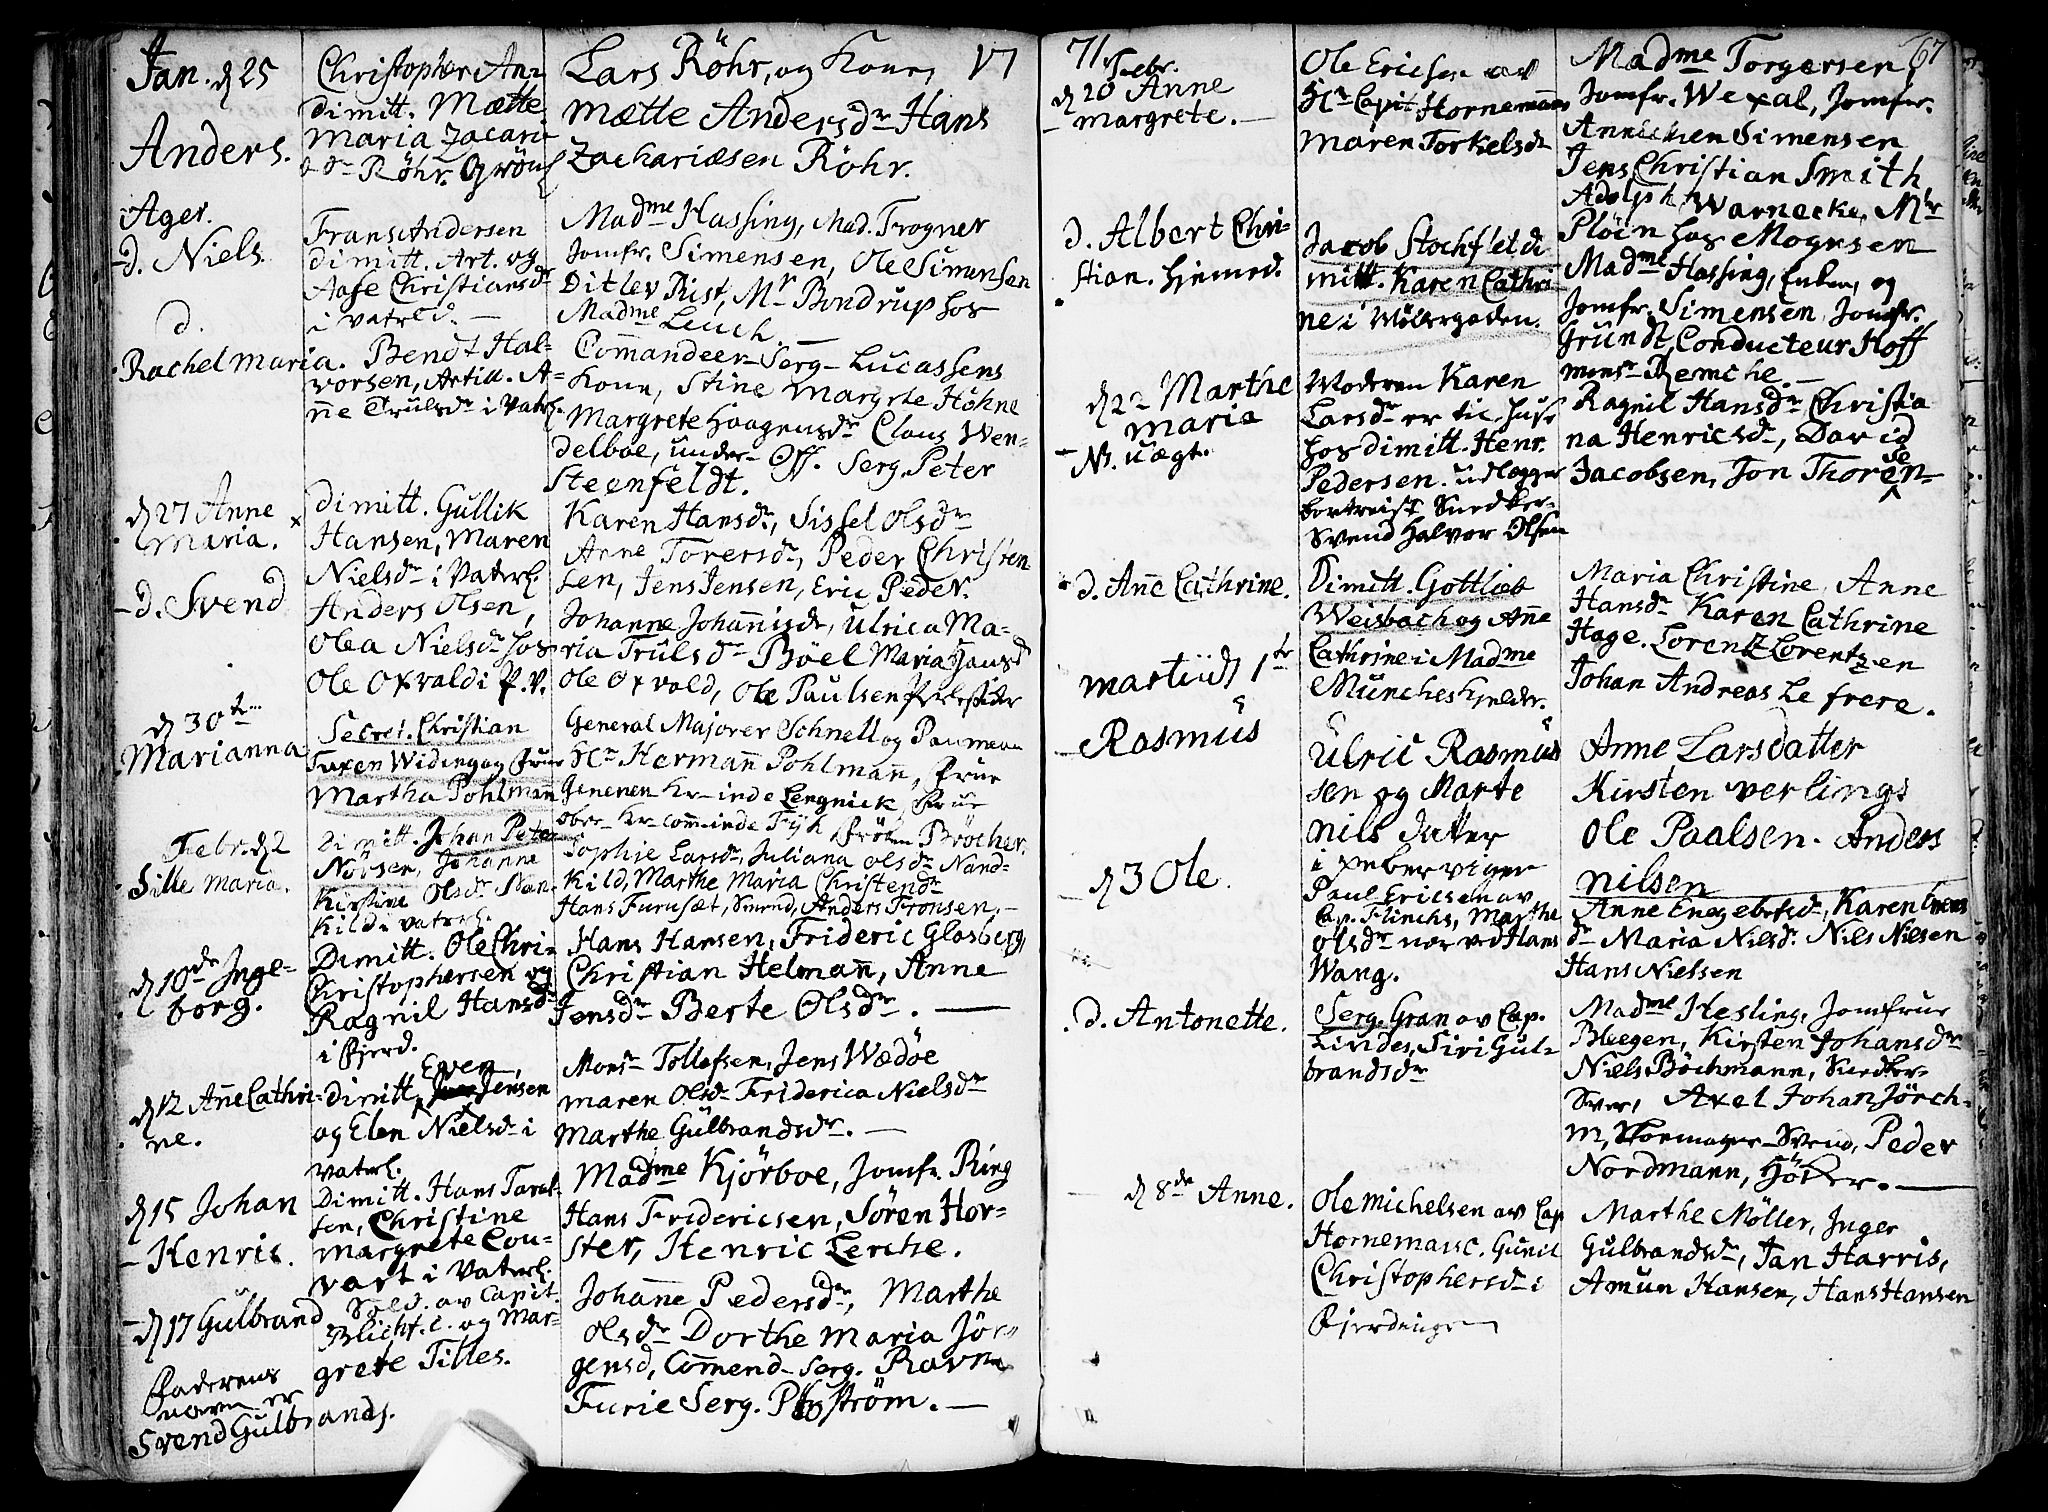 17
Jan. d 25
Anders.
Ager.
Christopher An-
dimitt. Mætte
Maria Zacari-
Röhr. Grön
Lars Röhr, og Kone,
Mætte Andersdr Hans
Zachariæsen Röhr.
d. Niels
Frans Andersen
dimitt. Art. og
Aase Christiansdr
i Vatrld. -
Madme Hassing, Mad. Frogner
Jomfr. Simensen, Ole Simensen
Ditlev Rist, Mr Bondrup hos
Madme Leuch. -
d.
Rachel Maria.
Bendt Hal-
vorsen, Artill. A-
ne Trulsdr i Vatrl.
Commandeer-Serg- Lucassens
Kone, Stine Margrte Höhne
Margrete Haagensdr Claus Wen-
delboe, under-Off. Serg. Peter
Steenfeldt.
d 27 Anne
Maria.
Dimitt. Gullik
Hansen, Maren
Nielsdr i Vaterl.
Karen Hansdr, Sissel Olsdr
Anne Torersdr, Peder Christen
sen, Jens Jensen, Eric Peder.
- d. Svend
Anders Olsen,
Olea Nielsdr hos
Ole Oxvald i P.V.
Johanne Johannisdr, Ulrica Ma-
ria Trulsdr Böel Maria Hansd
Ole Oxvold, Ole Paulsen
d 30te
Marianna
Secret. Christian
Faxen Widing og Frue
Martha Pohlmann
General Majorer Schnell og Paumann
Hr Hermann Pohlmann, Frue
Lengnick, Frue
Fyk Fröken Bröcher.
Febr. d 2
Sille Maria.
Dimitt. Johan Peter
Nörsen, Johanne
Kirstine Olsdr Nan-
kild i Vatrl.
Sophie Larsdr, Juliana Olsdr Nand-
kild, Marthe Maria Christendr
Hans Furusæt, Smed, Anders Fronsen. -
d 10de Inge-
borg.
Dimitt. Ole Chri-
Christophersen og
Ragnil Hansdr
i Fjerd.
Hans Hansen, Frideric Glosberg,
Christian Helmann, Anne
Jensdr Berte Olsdr. -
d 12 Anne Cathri-
ne.
Even
dimitt. Jensen
og Elen Nielsdr i
Vaterl.
Monsr Tollefsen, Jens Wedöe
Maren Olsdr Friderica Nielsdr
Marthe Gulbrandsdr. -
d 15 Johan
- Henric.
Dimitt. Hans Tarel-
sen, Christine
Margrete Cou-
vart i Vaterl.
Madme Kjörboe, Jomfr. Ring
Hans Fridericsen, Sören Hor-
ster, Henric Lerche.
- d 17 Gulbrand
Faderens
navn er
Svend Gulbrands.
Sold. av Capit.
Blichf. C. og Mar-
grete Tilles.
Johanne Pedersdr, Marthe
Olsdr Dorthe Maria Jör-
gensd, Commend-Serg. Ravn
Furie Serg. ström. -
71
67
Febr.
d 20 Anne
- Margrete. -
Ole Ericsen av
Hr Capit Hornemanns
Maren Torkelsdr
Madme Torgersen,
Jomfr. Wexal, Jomfr.
Annichen Simensen
Jens Christian Smith
Adolph Warnecke, Mr
Plöin hos Mogesen
d. Albert Chri-
stian. hjemed.
Jacob Stochflet di
mitt. Karen Cathri
ne i Möllergaden.
Madme Hassing, Enken, og
Jomfr. Simensen Jomfr.
Grundt, Conducteur Hoff
Monsr Remche. -
d 22 Marthe
Maria
- NB. uægt.
Moderen Karen
Larsdr er til huse
hos dimitt. Henr.
Pedersen. udlægger
bortreist Snedker-
Svend Halvor Olsen
Ragnil Hansdr Christia
na Henricsdr, David
Jacobsen, Jon Thoresen-
d. Anne Cathrine.
Dimitt. Gottlieb
Weisbach og Anne
Cathrine i Madme
Münches kjelder.
Maria Christine, Anne
Hansdr Karen Cathrine
Hage. Lorentz Lorentzen
Johan Andreas Le frere.
Martii d 1te
- Rasmus
Ulric Rasmus
sen og Marte
Nils datter
i pebervigen
Anne Larsdatter
Kirsten verlings
Ole Paalsen. Anders
Nilsen
- d 3 Ole.
Paul Ericsen av
Cap. Flinchs, Marthe
Olsdr nor ved Hans
Wang.
Anne Engebretsdr, Karen Evens
dr Maria Nilsdr. Nils Nilsen
Hans Nielsen
. d. Antonette.
Serg. Gran av Cap.
Lindes, Siri Gul-
brandsdr
Madme Hesling, Jomfrue
Bleegen, Kirsten Johansdr
Niels Böchmann, Snedker-
Sven, Axel Johan Jörch-
m, Skomager-Svend, Peder
Nordmann, Höker. -
- d 8de Anne.
Ole Michelsen av Cap
Hornemans C. Gunil
Christophersdr i
Fjerdingen
Marthe Möller, Inger
Gulbrandsdr, Jan Harris,
Amun Hansen, Hans Hansen